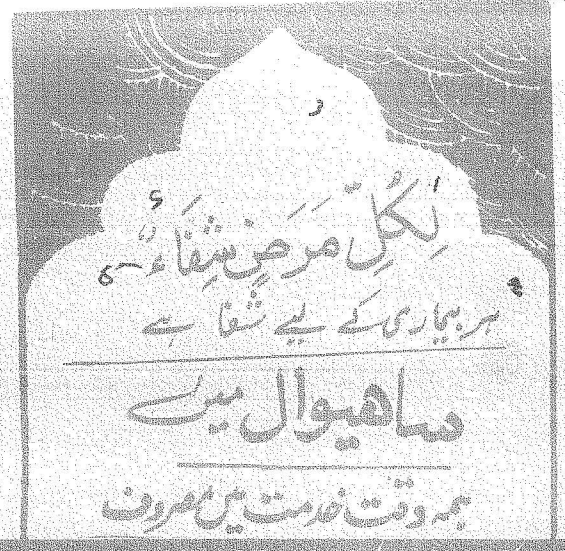 لِكُلِّ مَرَضٍ شِفَاءٌ
ہر بیماری کے لیے شفا ہے
ساھیوال میں
ہمہ وقت خدمت میں مصروف